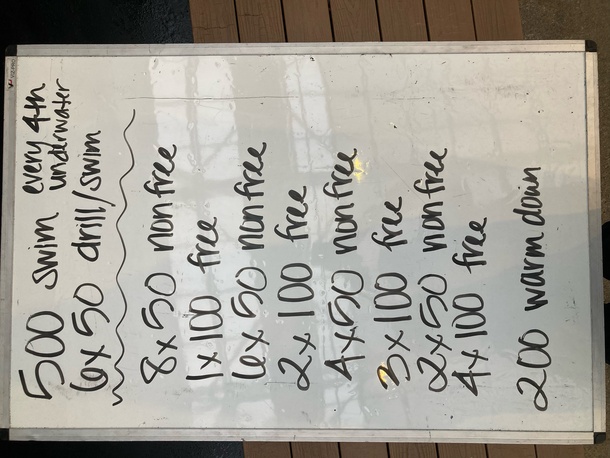 500 swim every 4th
underwater
6x50 drill/swim
8x50 nonfree
1x100 free
6x50 nonfree
2x100 free
4x50 nonfree
3x100 free
2x50 nonfree
4x100 free
200 warm down